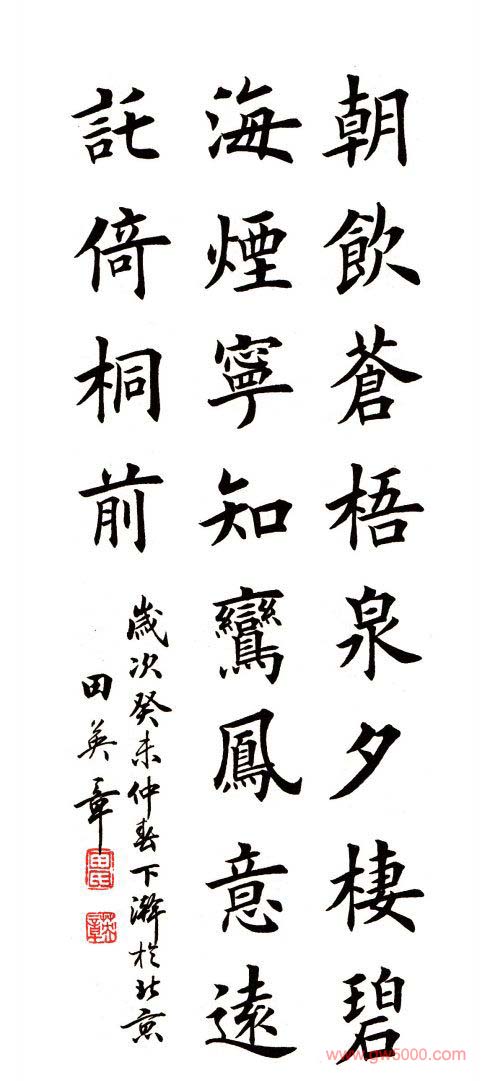 朝飲蒼梧泉夕棲碧
海煙寧知鸞鳳意遠
託倚桐前
歲次癸未仲春下澣於北京
田英章
田氏
英章
www.gw5000.com